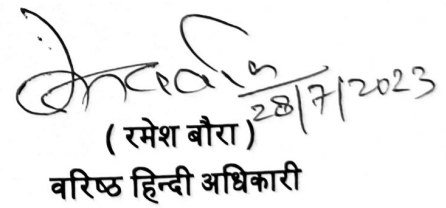 28/7/2023
( रमेश बौरा )
वरिष्ठ हिन्दी अधिकारी